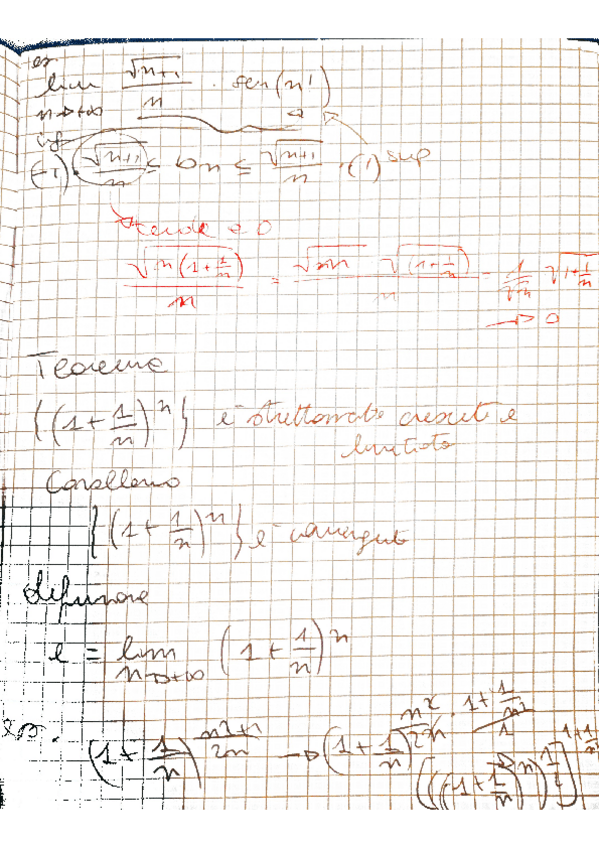 es
lim √(n+1)/n · sen(n!)
n→+∞
inf
(-1) · √(n+1)/n ≤ bn ≤ √(n+1)/n · (1) sup
tende a 0
√(n(1+1/n))/n = √n √(1+1/n)/n = 1/√n √(1+1/n)
→ 0
Teorema
{(1+1/n)^n} è strettamente crescente e
limitata
Corollario
{(1+1/n)^n} è convergente
definizione
e = lim (1+1/n)^n
n→+∞
es.
(1+1/n)^((n²+n)/2n) → (1+1/n)